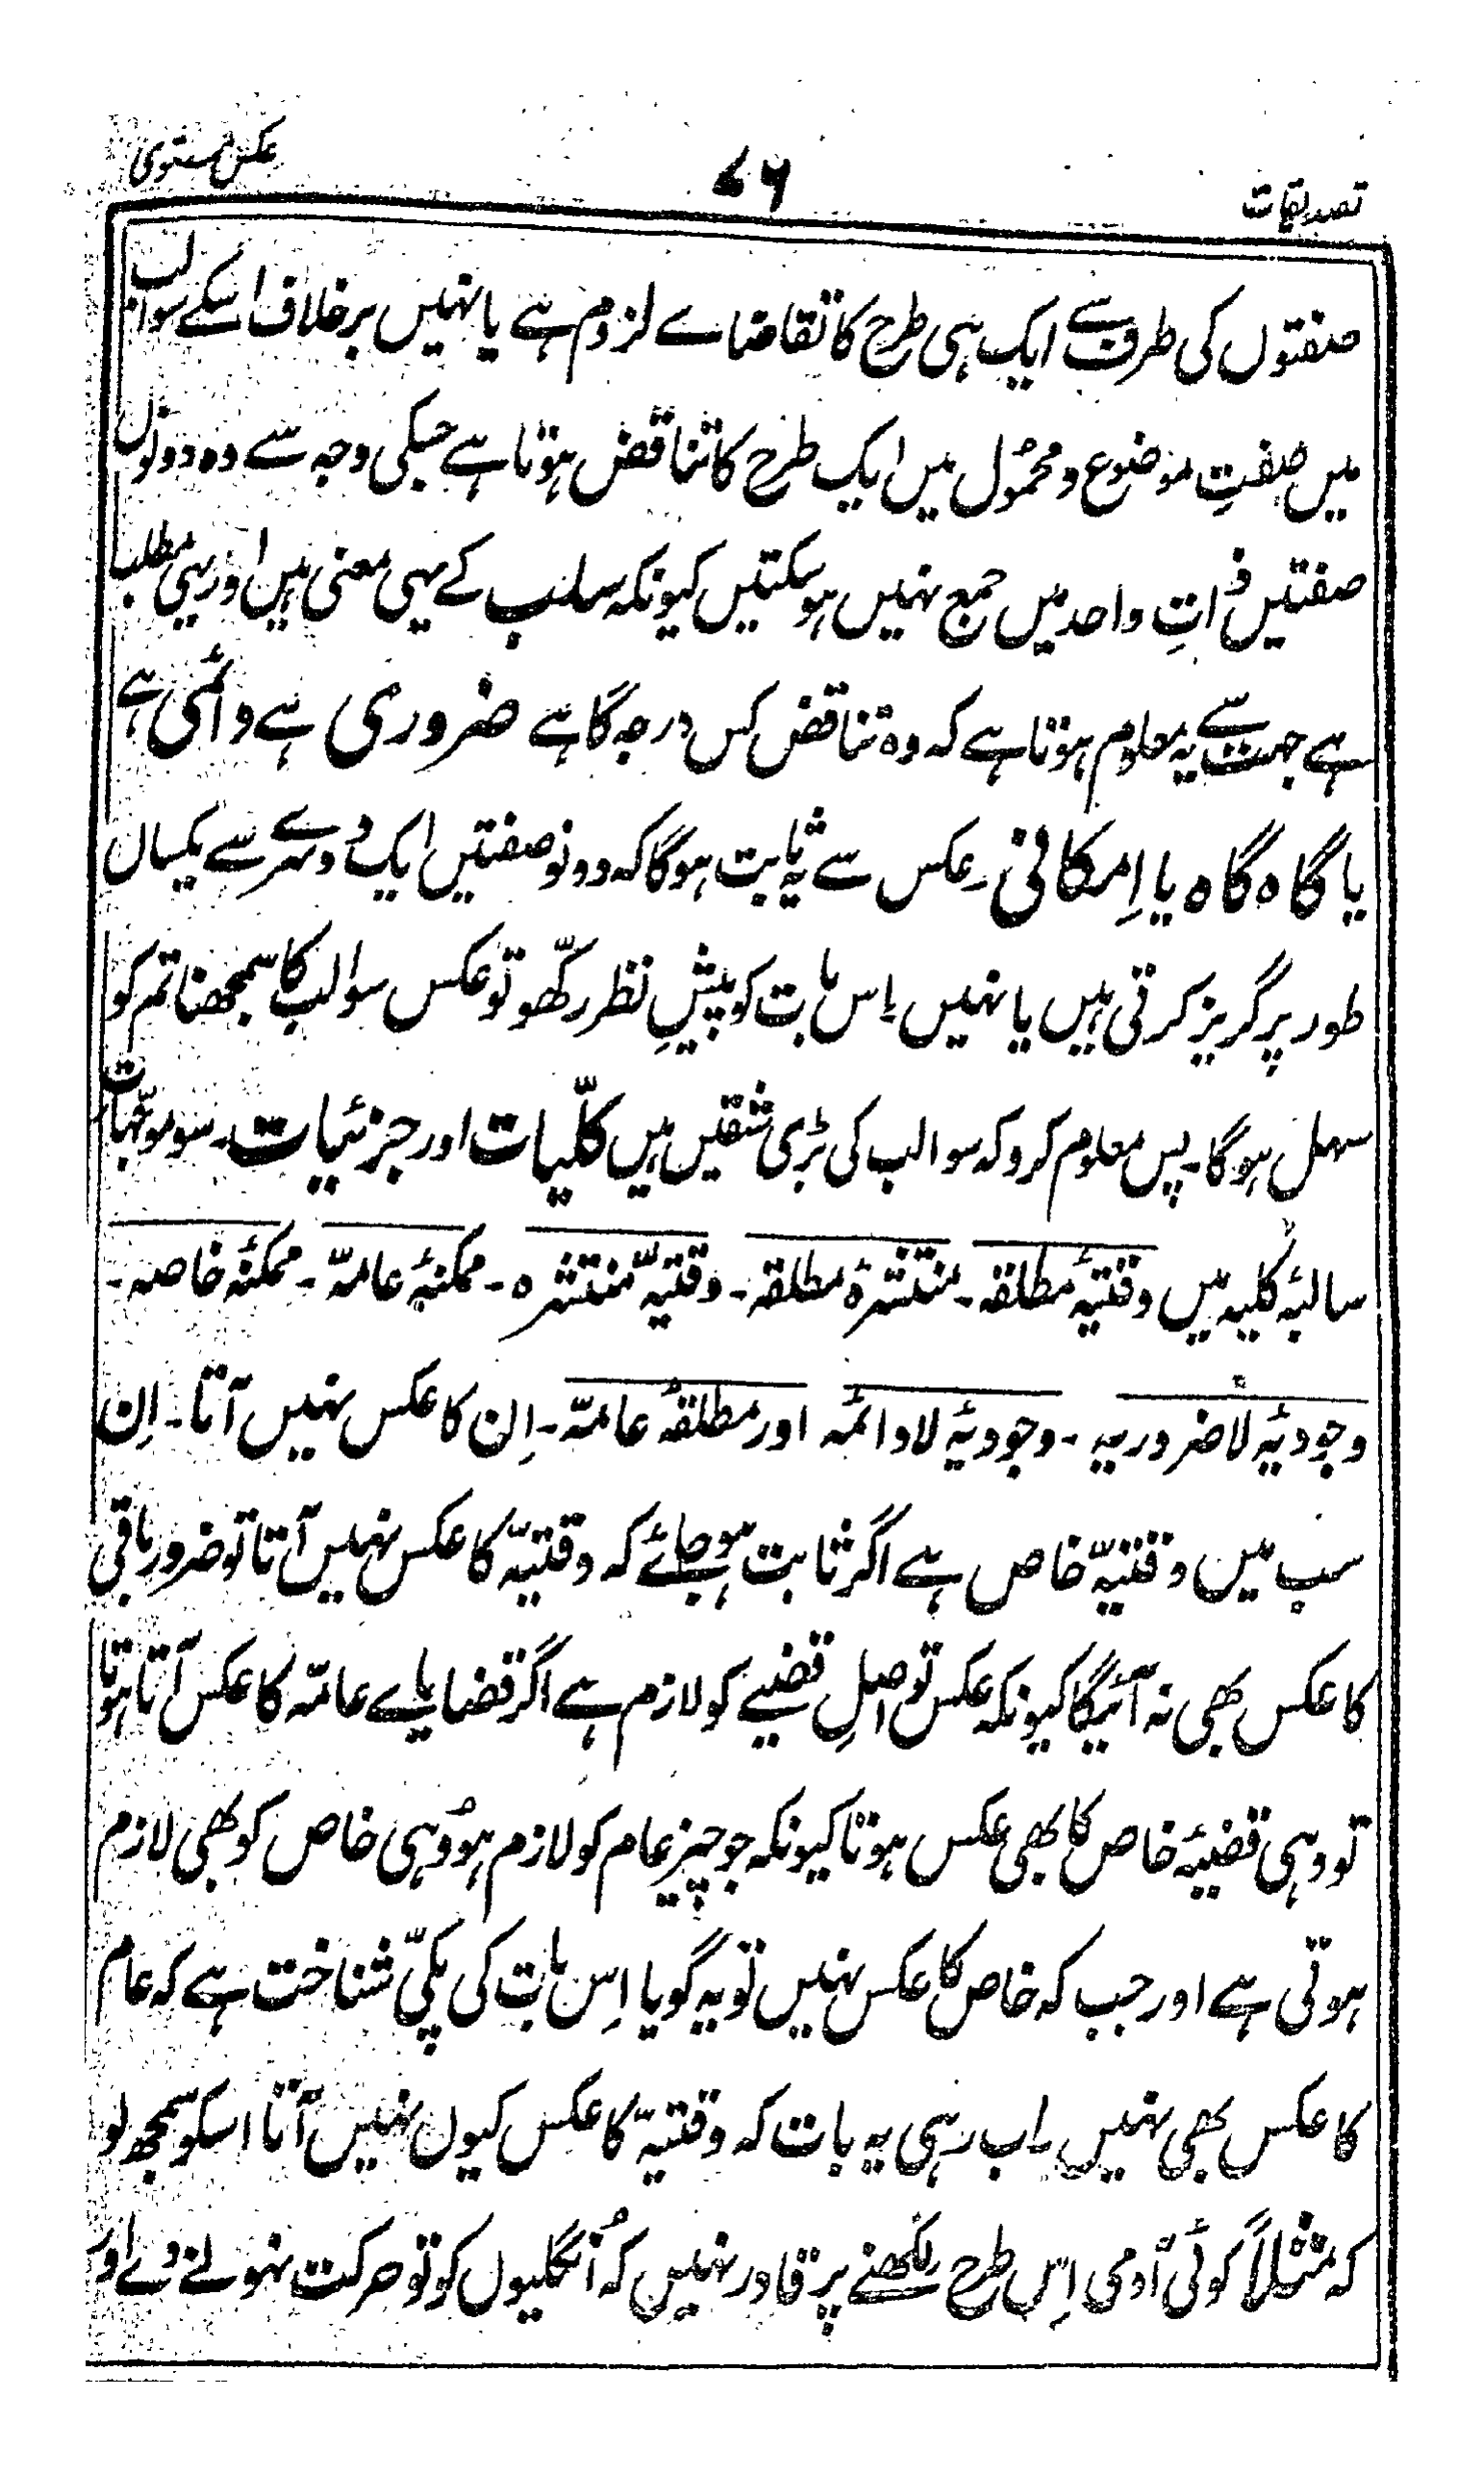 تصدیقات ۷۶ عکس مستوی
صفتوں کی طرف سے ایک ہی طرح کا تقاضاے لزوم ہے یا نہیں برخلاف اسکے سوالب
میں صفتِ موضوع و محمُول میں ایک طرح کا تناقض ہوتا ہے جسکی وجہ سے وہ دونوں
صفتیں ذاتِ واحد میں جمع نہیں ہو سکتیں کیونکہ سلب کے یہی معنی ہیں اور یہی مطلب
ہے جہت سے یہ معلوم ہوتا ہے کہ وہ تناقض کس درجہ کا ہے ضروری ہے دائمی ہے
یا گاہ گاہ یا اِمکانی ۔ عکس سے یہ ثابت ہوگا کہ دونو صفتیں ایک دوسرے سے یکساں
طور پر گریز کرتی ہیں یا نہیں اِس بات کو پیشِ نظر رکّھو تو عکس سوالب کا سمجھنا تم کو
سہل ہوگا۔ پس معلوم کرو کہ سوالب کی بڑی شقیں ہیں کلّیات اور جزئیات۔ سو موجّہات
سالبۂ کلیہ میں وقتیۂ مطلقہ۔ منتشرۂ مطلقہ۔ وقتیہّ منتشرہ۔ ممکنۂ عامّہ۔ ممکنۂ خاصہ۔
وجودیۂ لاضروریہ ۔ وجودیۂ لادائمہ اور مطلقۂ عامّہ۔ اِن کا عکس نہیں آتا۔ اِن
سب میں وقتیہّ خاص ہے اگر ثابت ہو جائے کہ وقتیہّ کا عکس نہیں آتا تو ضرور باقی
کا عکس بھی نہ آئیگا کیونکہ عکس تو اصلِ قضیے کو لازم ہے اگر قضایاے عامّہ کا عکس آتا ہوتا
تو وہی قضیۂ خاص کا بھی عکس ہوتا کیونکہ جو چیز عام کو لازم ہو وُہی خاص کو بھی لازم
ہوتی ہے اور جب کہ خاص کا عکس نہیں تو یہ گویا اِس بات کی پکّی شناخت ہے کہ عام
کا عکس بھی نہیں ۔ اب رہی یہ بات کہ وقتیہّ کا عکس کیوں نہیں آتا اسکو سمجھ لو
کہ مثلاً کوئی آدمی اِس طرح لکھنے پر قادر نہیں کہ اُنگلیوں کو تو حرکت نہونے دے اور